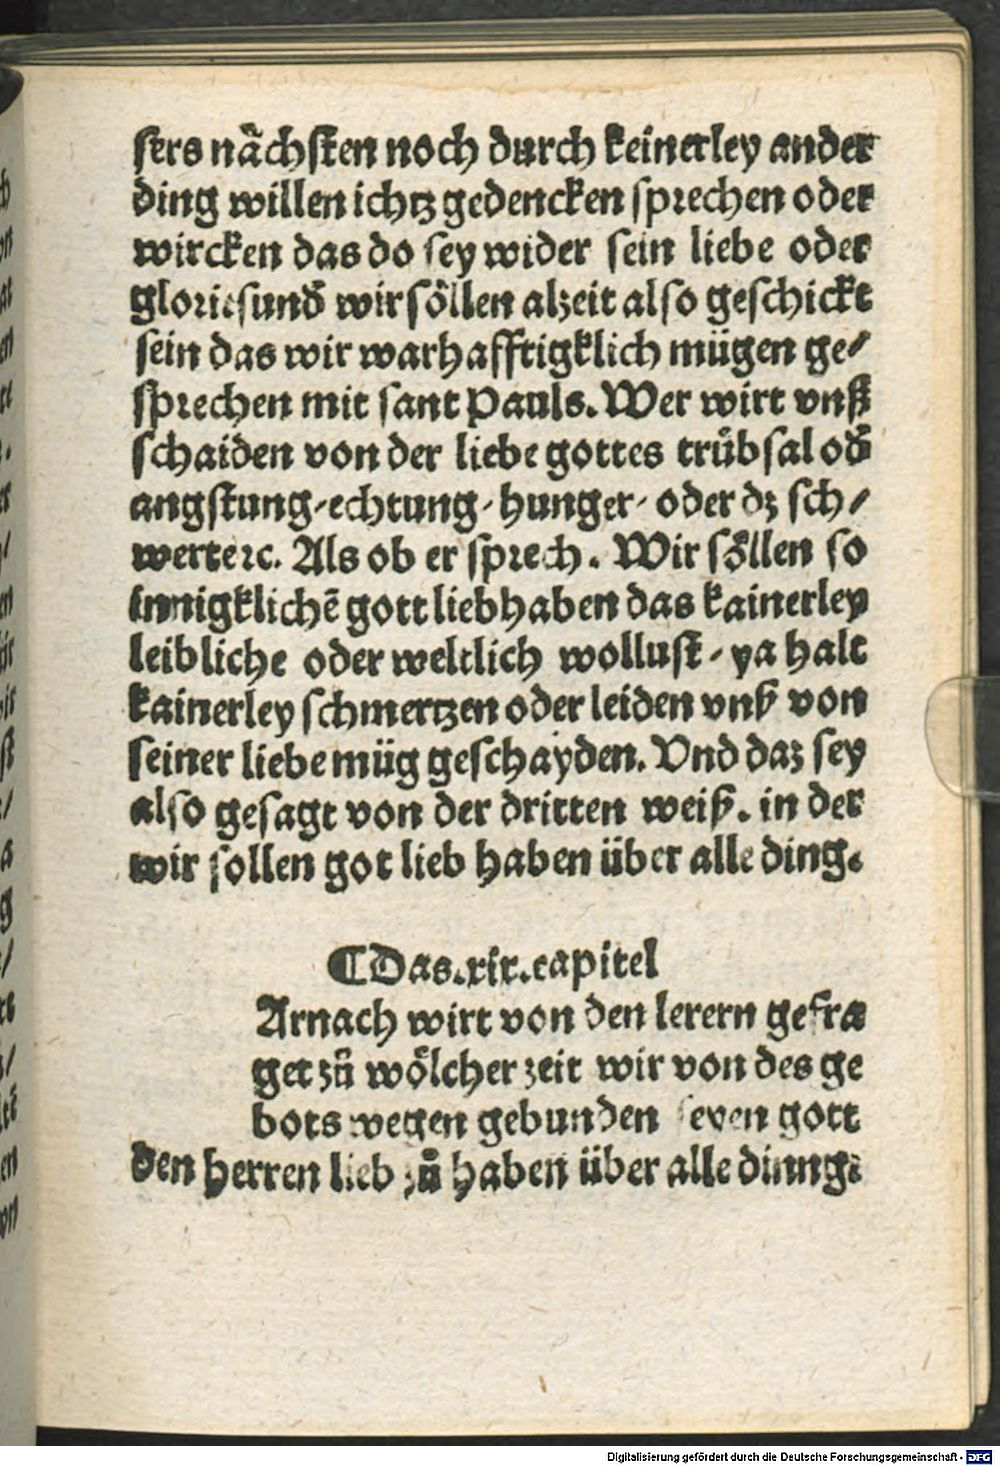 sers nächsten noch durch keinerley ander
ding willen ichtz gedencken sprechen oder
wircken das do sey wider sein liebe oder
glorie sund̃ wir söllen alzeit also geschickt
sein das wir warhafftigklich mügen ge⸗
sprechen mit sant Pauls. Wer wirt vnß
schaiden von der liebe gottes trübsal od̃
angstung/echtung/hunger/oder dz sch⸗
wert ⁊c. Als ob er sprech. Wir söllen so
innigklichē gott lieb haben das kainerley
leibliche oder weltlich wollust/ya halt
kainerley schmertzen oder leiden vnß von
seiner liebe müg geschayden. Vnd daz sey
also gesagt von der dritten weiß. in der
wir sollen got lieb haben über alle ding.
¶Das.xix.capitel
Arnach wirt von den lerern gefra
get zů wölcher zeit wir von des ge
bots wegen gebunden seyen gott
den herren lieb zů haben über alle dinng.
Digitalisierung gefördert durch die Deutsche Forschungsgemeinschaft - DFG